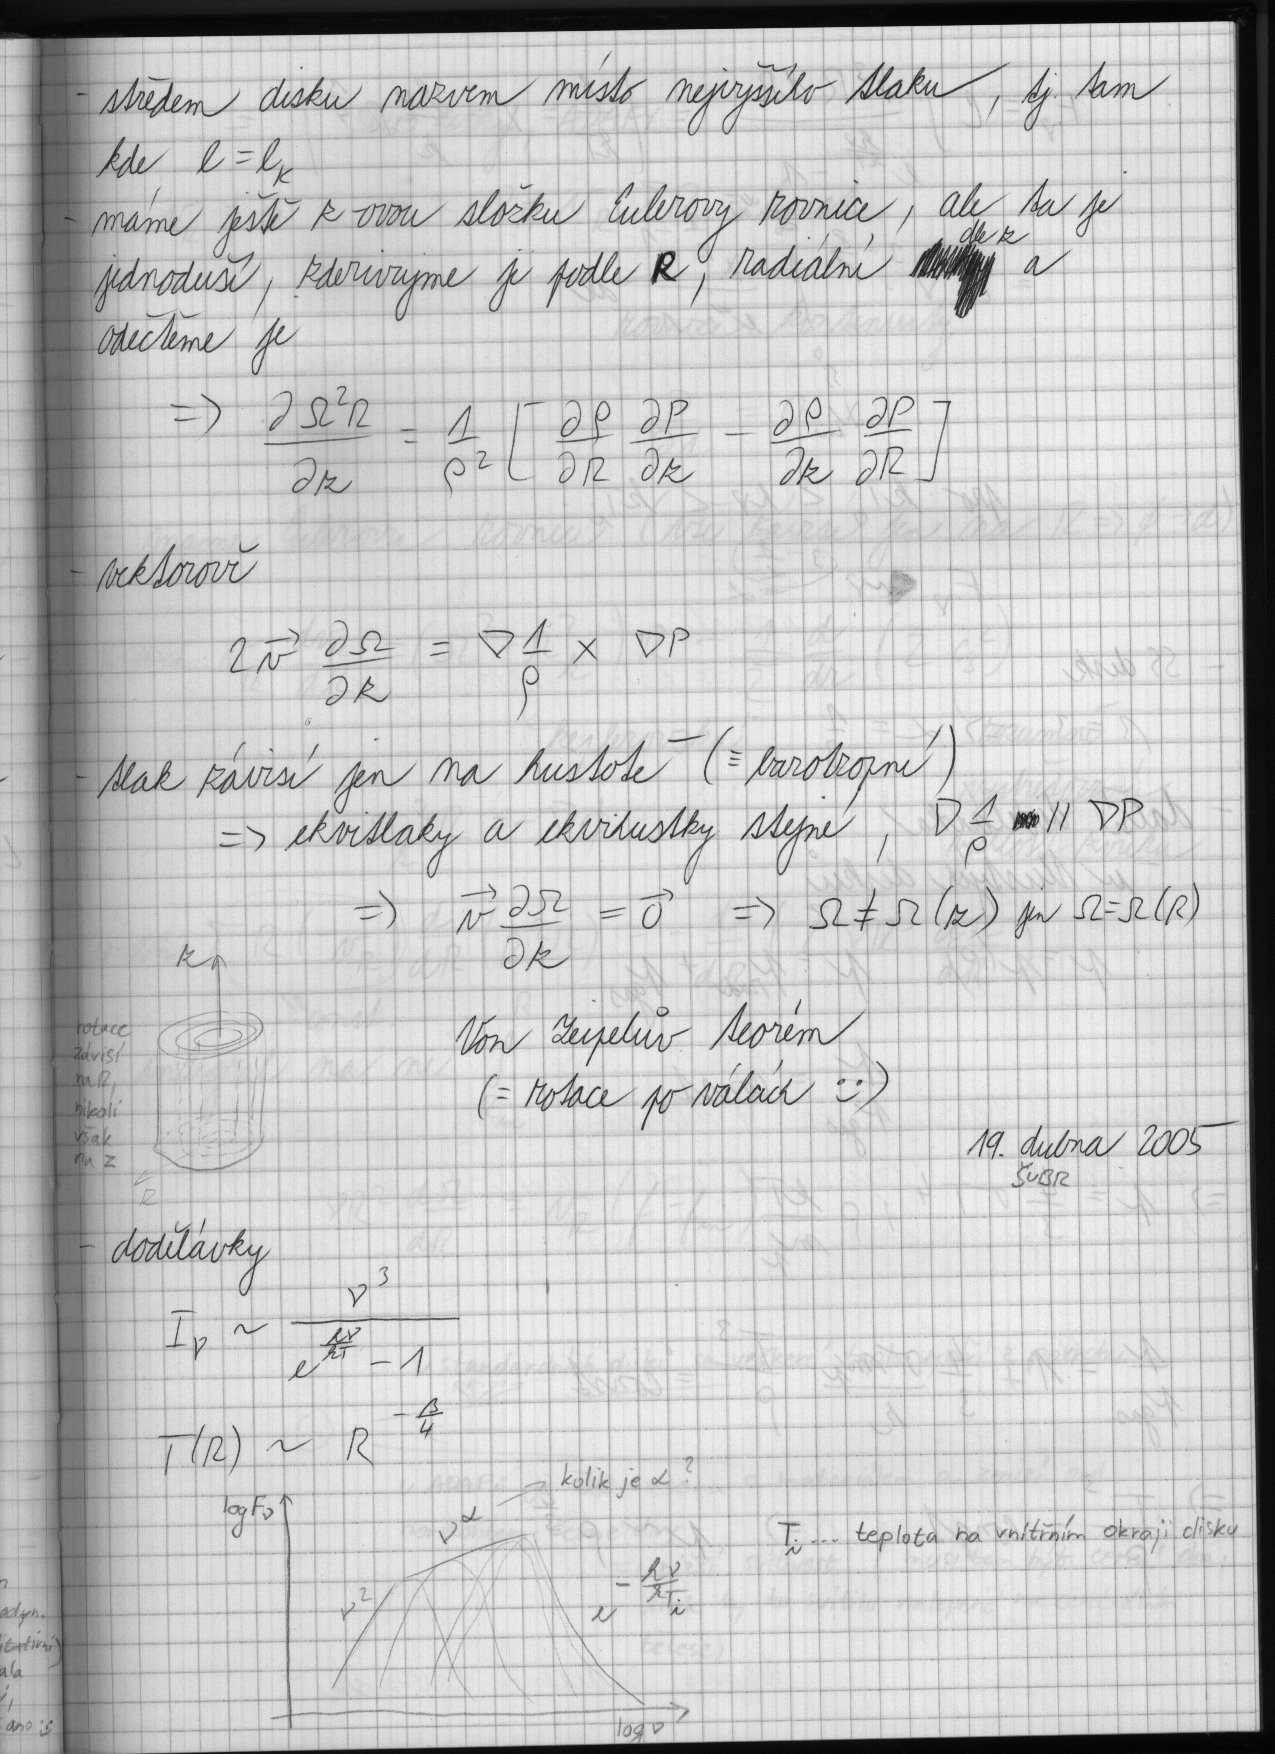 - středem disku nazvem místo nejvyššího tlaku, tj. tam
kde l = l_K
- máme ještě z-ovou složku Eulerovy rovnice, ale ta je
jednoduší, zderivujme ji podle R, radiální dle z a
odečtěme je
=> ∂Ω²R/∂z = 1/ρ² [ ∂ρ/∂R ∂P/∂z - ∂ρ/∂z ∂P/∂R ]
- vektorově
2v⃗ ∂Ω/∂z = ∇ 1/ρ × ∇P
- tlak závisí jen na hustotě - (≡ barotropní)
=> ekvitlaky a ekvihustky stejné, ∇ 1/ρ || ∇P
=> v⃗ ∂Ω/∂z = 0⃗ => Ω ≠ Ω(z) jen Ω=Ω(R)
z
rotace
závisí
na R,
nikoli
však
na z
R
Von Zeipelův teorém
(= rotace po válcích :-)
19. dubna 2005
ŠUBR
- dodělávky
I_ν ~ ν³ / (e^(hν/kT) - 1)
T(R) ~ R^(-β/4)
log F_ν
ν^α
kolik je α?
ν²
e^(-hν/kT_i)
log ν
T_i .... teplota na vnitřním okraji disku